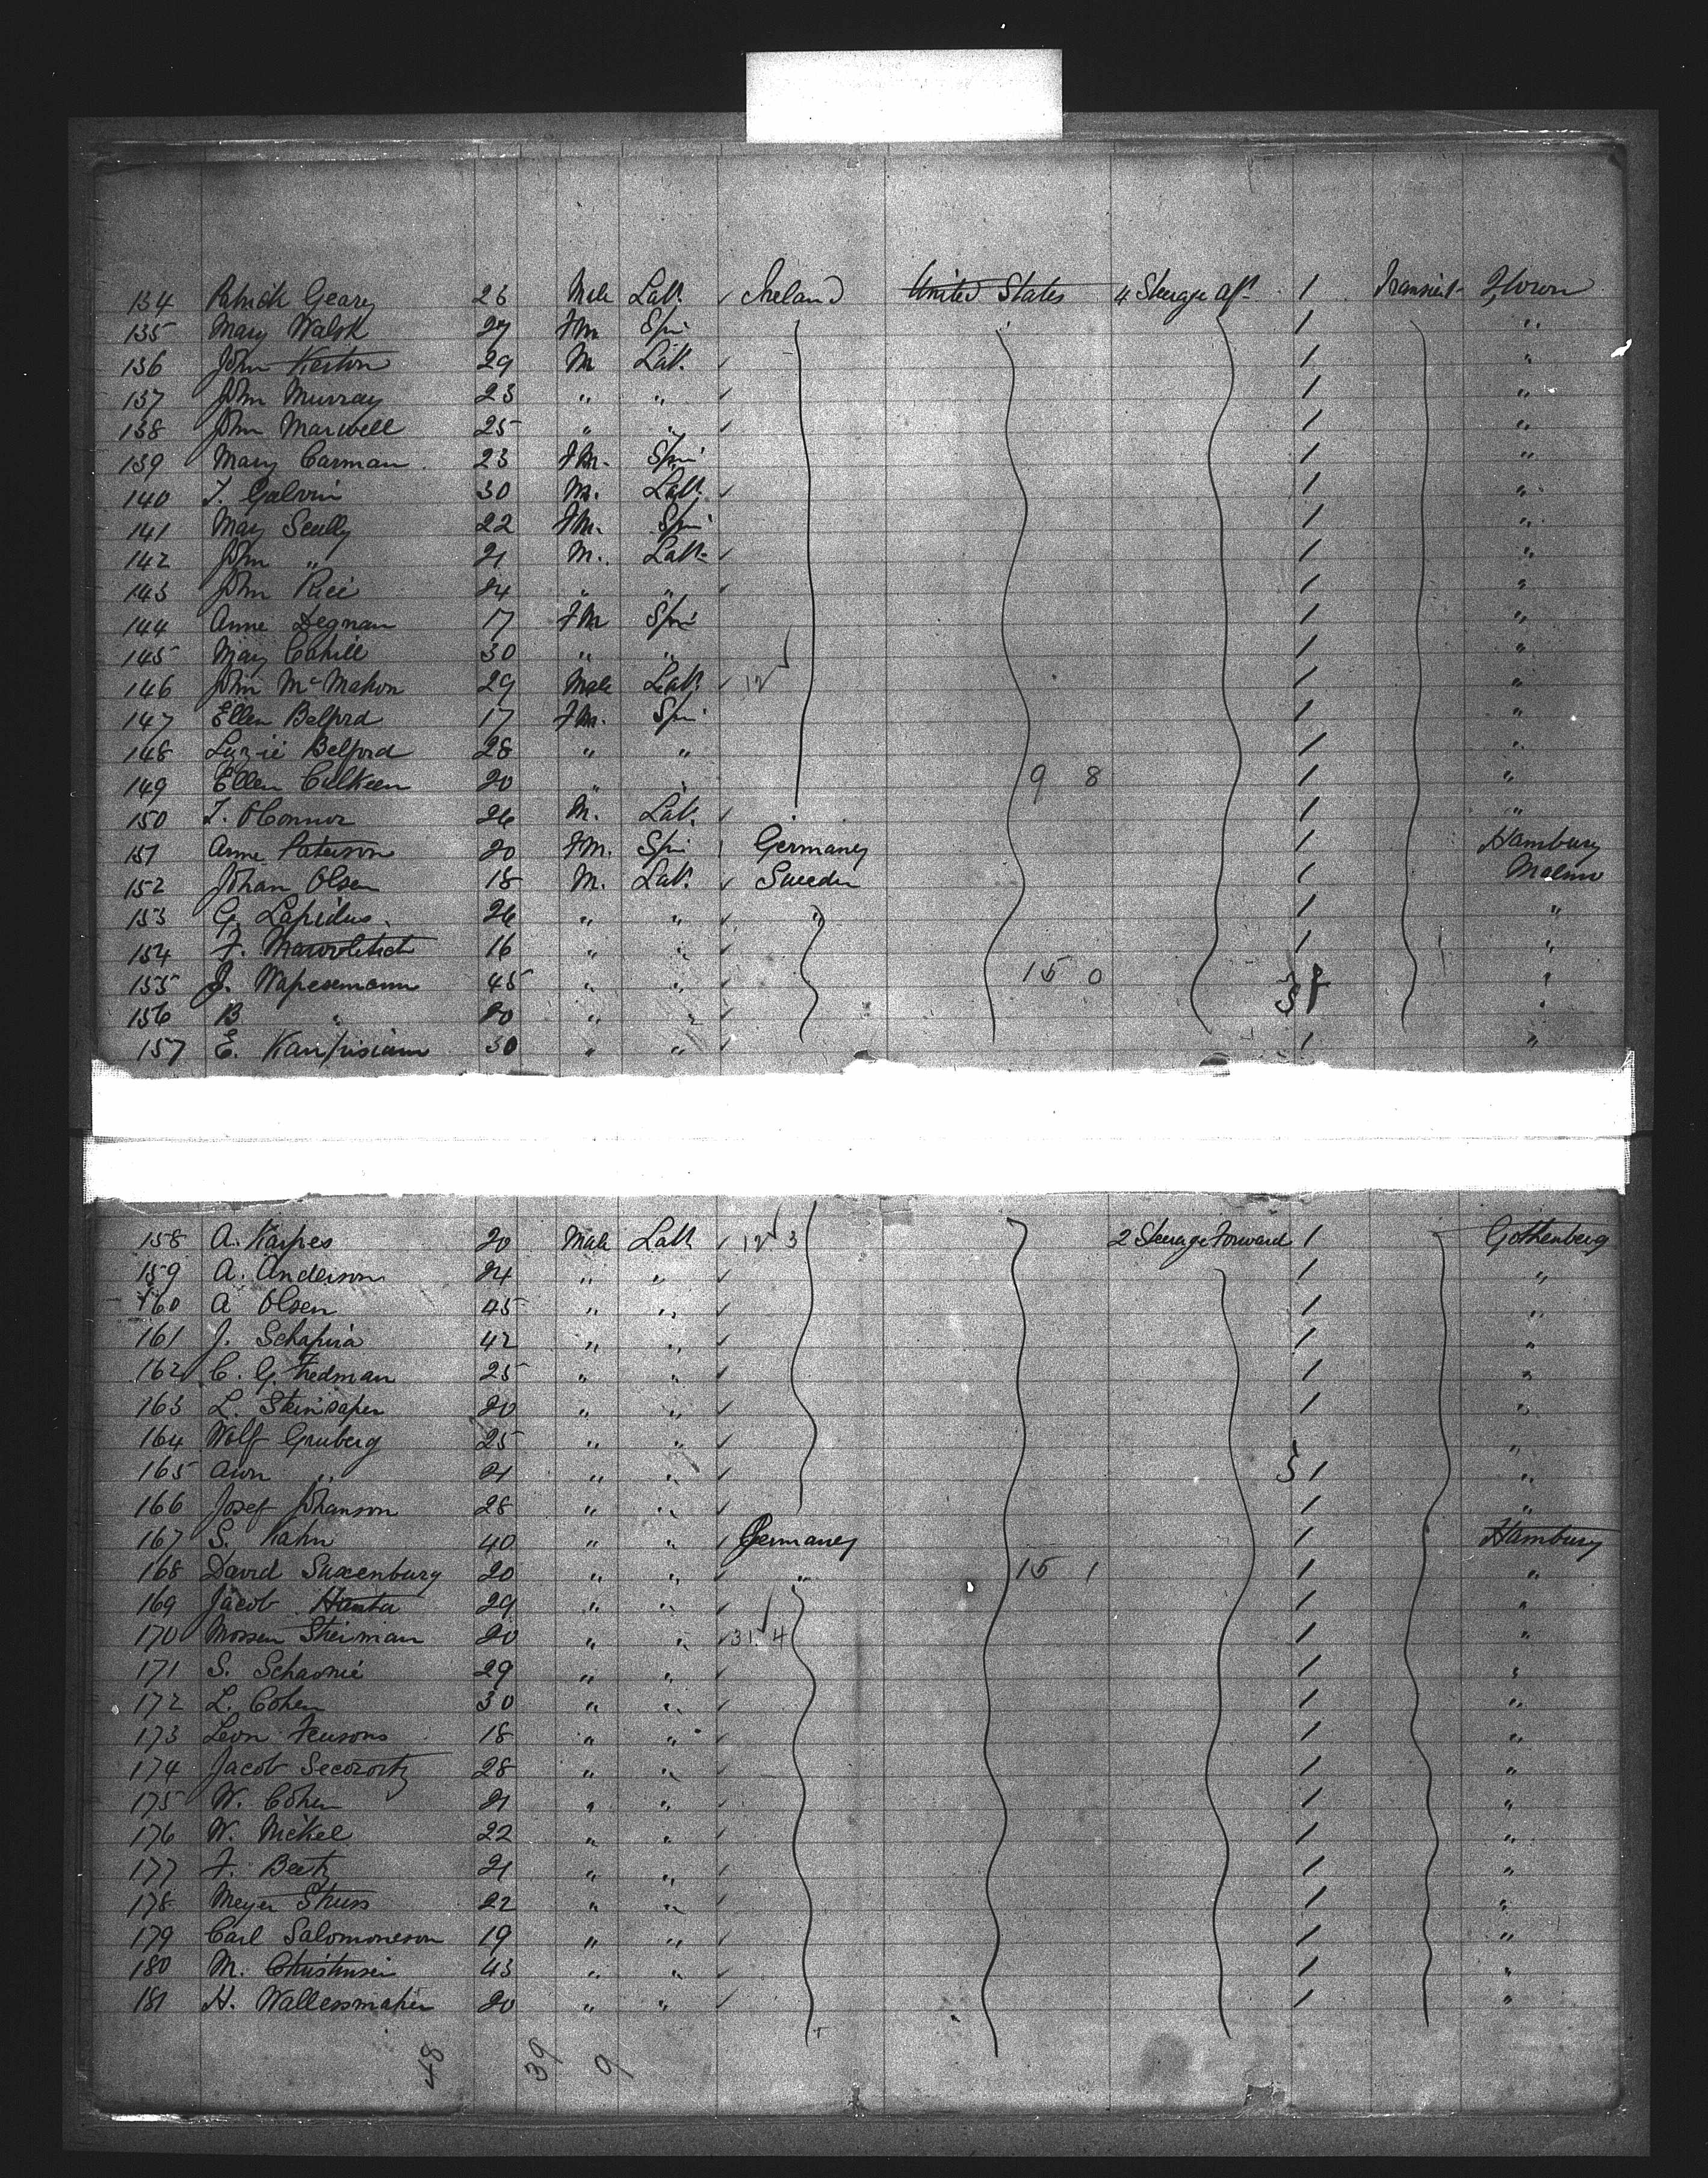 134 Patrick Geary 23 Male Lab. ✓ Ireland United States 4 Steerage aft 1 Transient Qtown
135 Mary Walsh 27 Fm Spr 1 "
136 John Keston 29 M Lab. ✓ 1 "
137 John Murray 23 " " ✓ 1 "
138 John Maxwell 25 " " ✓ 1 "
139 Mary Carman 23 Fm. Spr 1 "
140 T. Galvin 30 M. Lab. ✓ 1 "
141 Mary Scully 22 Fm. Spr 1 "
142 John " 21 M. Lab. ✓ 1 "
143 John Rice 24 " " ✓ 1 "
144 Anne Degnan 17 Fm Spr 1 "
145 Mary Cahill 30 " " 1 "
146 John McMahon 29 Male Lab. ✓ 12 1 "
147 Ellen Belford 17 Fm. Spr 1 "
148 Luzzie Belford 28 " " 1 "
149 Ellen Culkeen 20 " " 9 8 1 "
150 T. O'Connor 26 M. Lab. ✓ 1 "
151 Anne Paterson 20 Fm. Spr Germany 1 Hamburg
152 Johan Olsen 18 M. Lab. ✓ Sweden 1 Malmo
153 G. Lapidus 26 " " ✓ " 1 "
154 16 " " ✓ 1 "
155 J. Wapesemann 45 " " ✓ 15 0 "
156 B " 20 " " ✓ "
157 E. 30 " " ✓ 1 "
158 A. Karpes 20 Male Lab. ✓ 12 3 2 Steerage Forward 1 Gothenberg
159 A. Anderson 24 " " ✓ 1 "
160 A Olsen 45 " " ✓ 1 "
161 J. Schapira 42 " " ✓ 1 "
162 C. G. Fredman 25 " " ✓ 1 "
163 L. Steinsaper 20 " " ✓ 1 "
164 Wolf Gruberg 25 " " ✓ "
165 Awn " 21 " " ✓ 5 1 "
166 Josef Johanson 28 " " ✓ 1 "
167 S. Kahn 40 " " ✓ Germany 1 Hamburg
168 David Suxenburg 20 " " ✓ " 15 1 1 "
169 Jacob Hamta 29 " " ✓ 1 "
170 Mossen Sheiman 20 " " ✓ 31 4 1 "
171 S. Schasnie 29 " " ✓ 1 "
172 L. Cohen 30 " " ✓ 1 "
173 Leon Feusons 18 " " ✓ 1 "
174 Jacob Secorortz 28 " " ✓ 1 "
175 W. Cohen 21 " " ✓ 1 "
176 W. Nickel 22 " " ✓ 1 "
177 F. Beetz 21 " " ✓ 1 "
178 Meyer Struss 22 " " ✓ 1 "
179 Carl Salomoneson 19 " " ✓ 1 "
180 M. Christensen 43 " " ✓ 1 "
181 H. Wallessmaper 20 " " ✓ 1 "
48 39 9